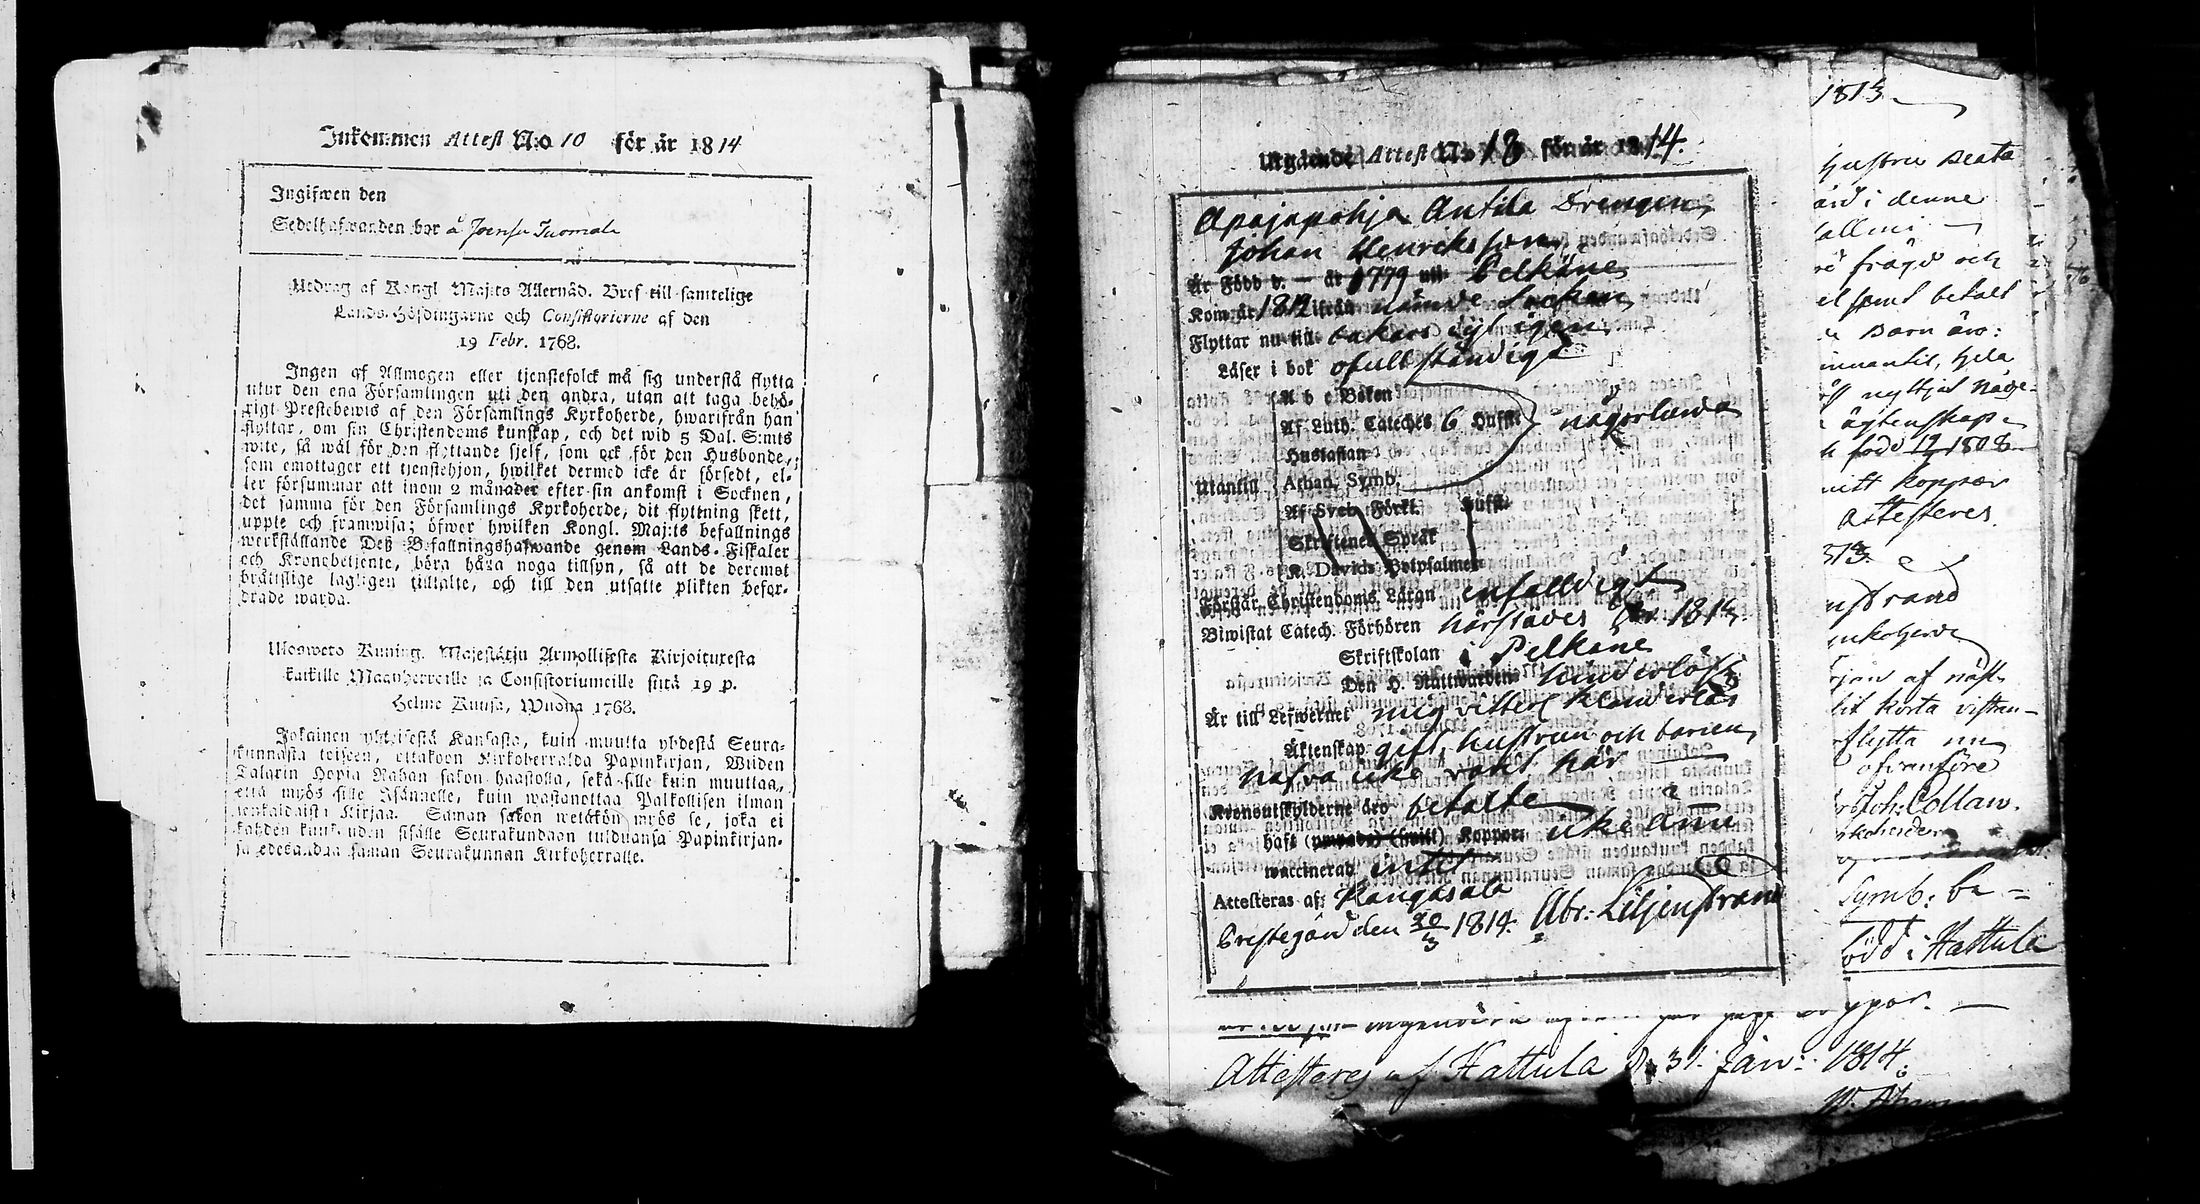 Inkommen Attest N:o 10 för år 1814
Ingifwen den
Sedelhafwanden bor å Joensu Tuomala
Utdrag af Kongl. Maj:ts Allernåd. Bref till samtelige
Lands-Höfdingarne och Consistorierne af den
19 Febr. 1768.
Ingen af Allmogen eller tjenstefolck må sig understå flytta
utur den ena Församlingen uti den andra, utan att taga behö-
rigt Prestebewis af den Församlings Kyrkoherde, hwarifrån han
flyttar, om sin Christendoms kunskap, och det wid 5 Dal. S:mts
wite, så wäl för den flyttande sjelf, som ock för den Husbonde,
som emottager ett tjenstehjon, hwilket dermed icke är försedt, el-
ler försummar att inom 2 månader efter sin ankomst i Socknen,
det samma för den Församlings Kyrkoherde, dit flyttning skett,
uppte och framwisa; öfwer hwilken Kongl. Maj:ts befallnings
werkställande Deß Befallningshafwande genom Lands-Fiskaler
och Kronobetjente, böra hafwa noga tillsyn, så att de deremot
bråttslige lagligen tilltalte, och till den utsatte plikten befor-
drade warda.
Ulosweto Kuning. Majestätin Armollisesta Kirjoituxesta
kaikille Maanherroille ja Consistoriumeille siitä 19 p.
Helme Kuusa, Wuonna 1768.
Jokainen yhteisestä Kansasta, kuin muutta yhdestä Seura-
kunnasta toiseen, ottakoon Kirkoherralda Papinkirjan, Wiiden
Talarin Hopia Rahan sakon haastolla, sekä sille kuin muuttaa,
että myös sille Isännelle, kuin wastanottaa Palkollisen ilman
senkaldaista Kirjaa. Saman sakon wetäkön myös se, joka ei
kahden kuukauden sisälle Seurakundaan tulduansa Papinkirjan-
sa edesanna saman Seurakunnan Kirkoherralle.
Utgående Attest N:o 18 för år 1814.
Apajapohja Antila Drengen
Johan Henricksson
Är Född d. — år 1779 uti Pelkäne
Kom år 1812 ifrån nämde Sochen
Flyttar nu till bakars dit igen
Läser i bok ofullständigt
A b c Boken
Af Luth. Cateches 6 Hufst. någorlunda
Hustaflan
Utantill Athan. Symb.
Af Sveb. Förkl. Hufst.
Skriftenes Språk
K. Davids Botpsalmer
Förstår Christendoms Läran enfaldigt
Biwistat Catech. Förhören härstädes 1813
Skriftskolan i Pelkäne
Den H. Nattwarden hinderlöst
Är till Lefwernet mig vitterl. klanderlös
Äktenskap gift, hustrun och barnen
hafva icke varit här
Kronoutskylderne äro betalte
haft Koppor icke ännu
waccinerad intet
Attesteras af: Kangasala
Prestegård den 20/3 1814. Abr: Liljenstrand
1813
hustru Beata
i denne
frägd och
samt betalt
Barn äro:
nyttjat Natt-
ägtenskap
född 12/1 1808
koppor
Attesteres
af näst-
korta vistan-
flytta nu
ofvanföre
Joh: Collan.
Symb: be-
född i Hattula
koppor. —
Attesteres af Hattula d. 31 Jan: 1814.